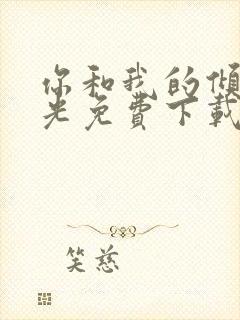 你和我的倾
光免费下载
笑慈